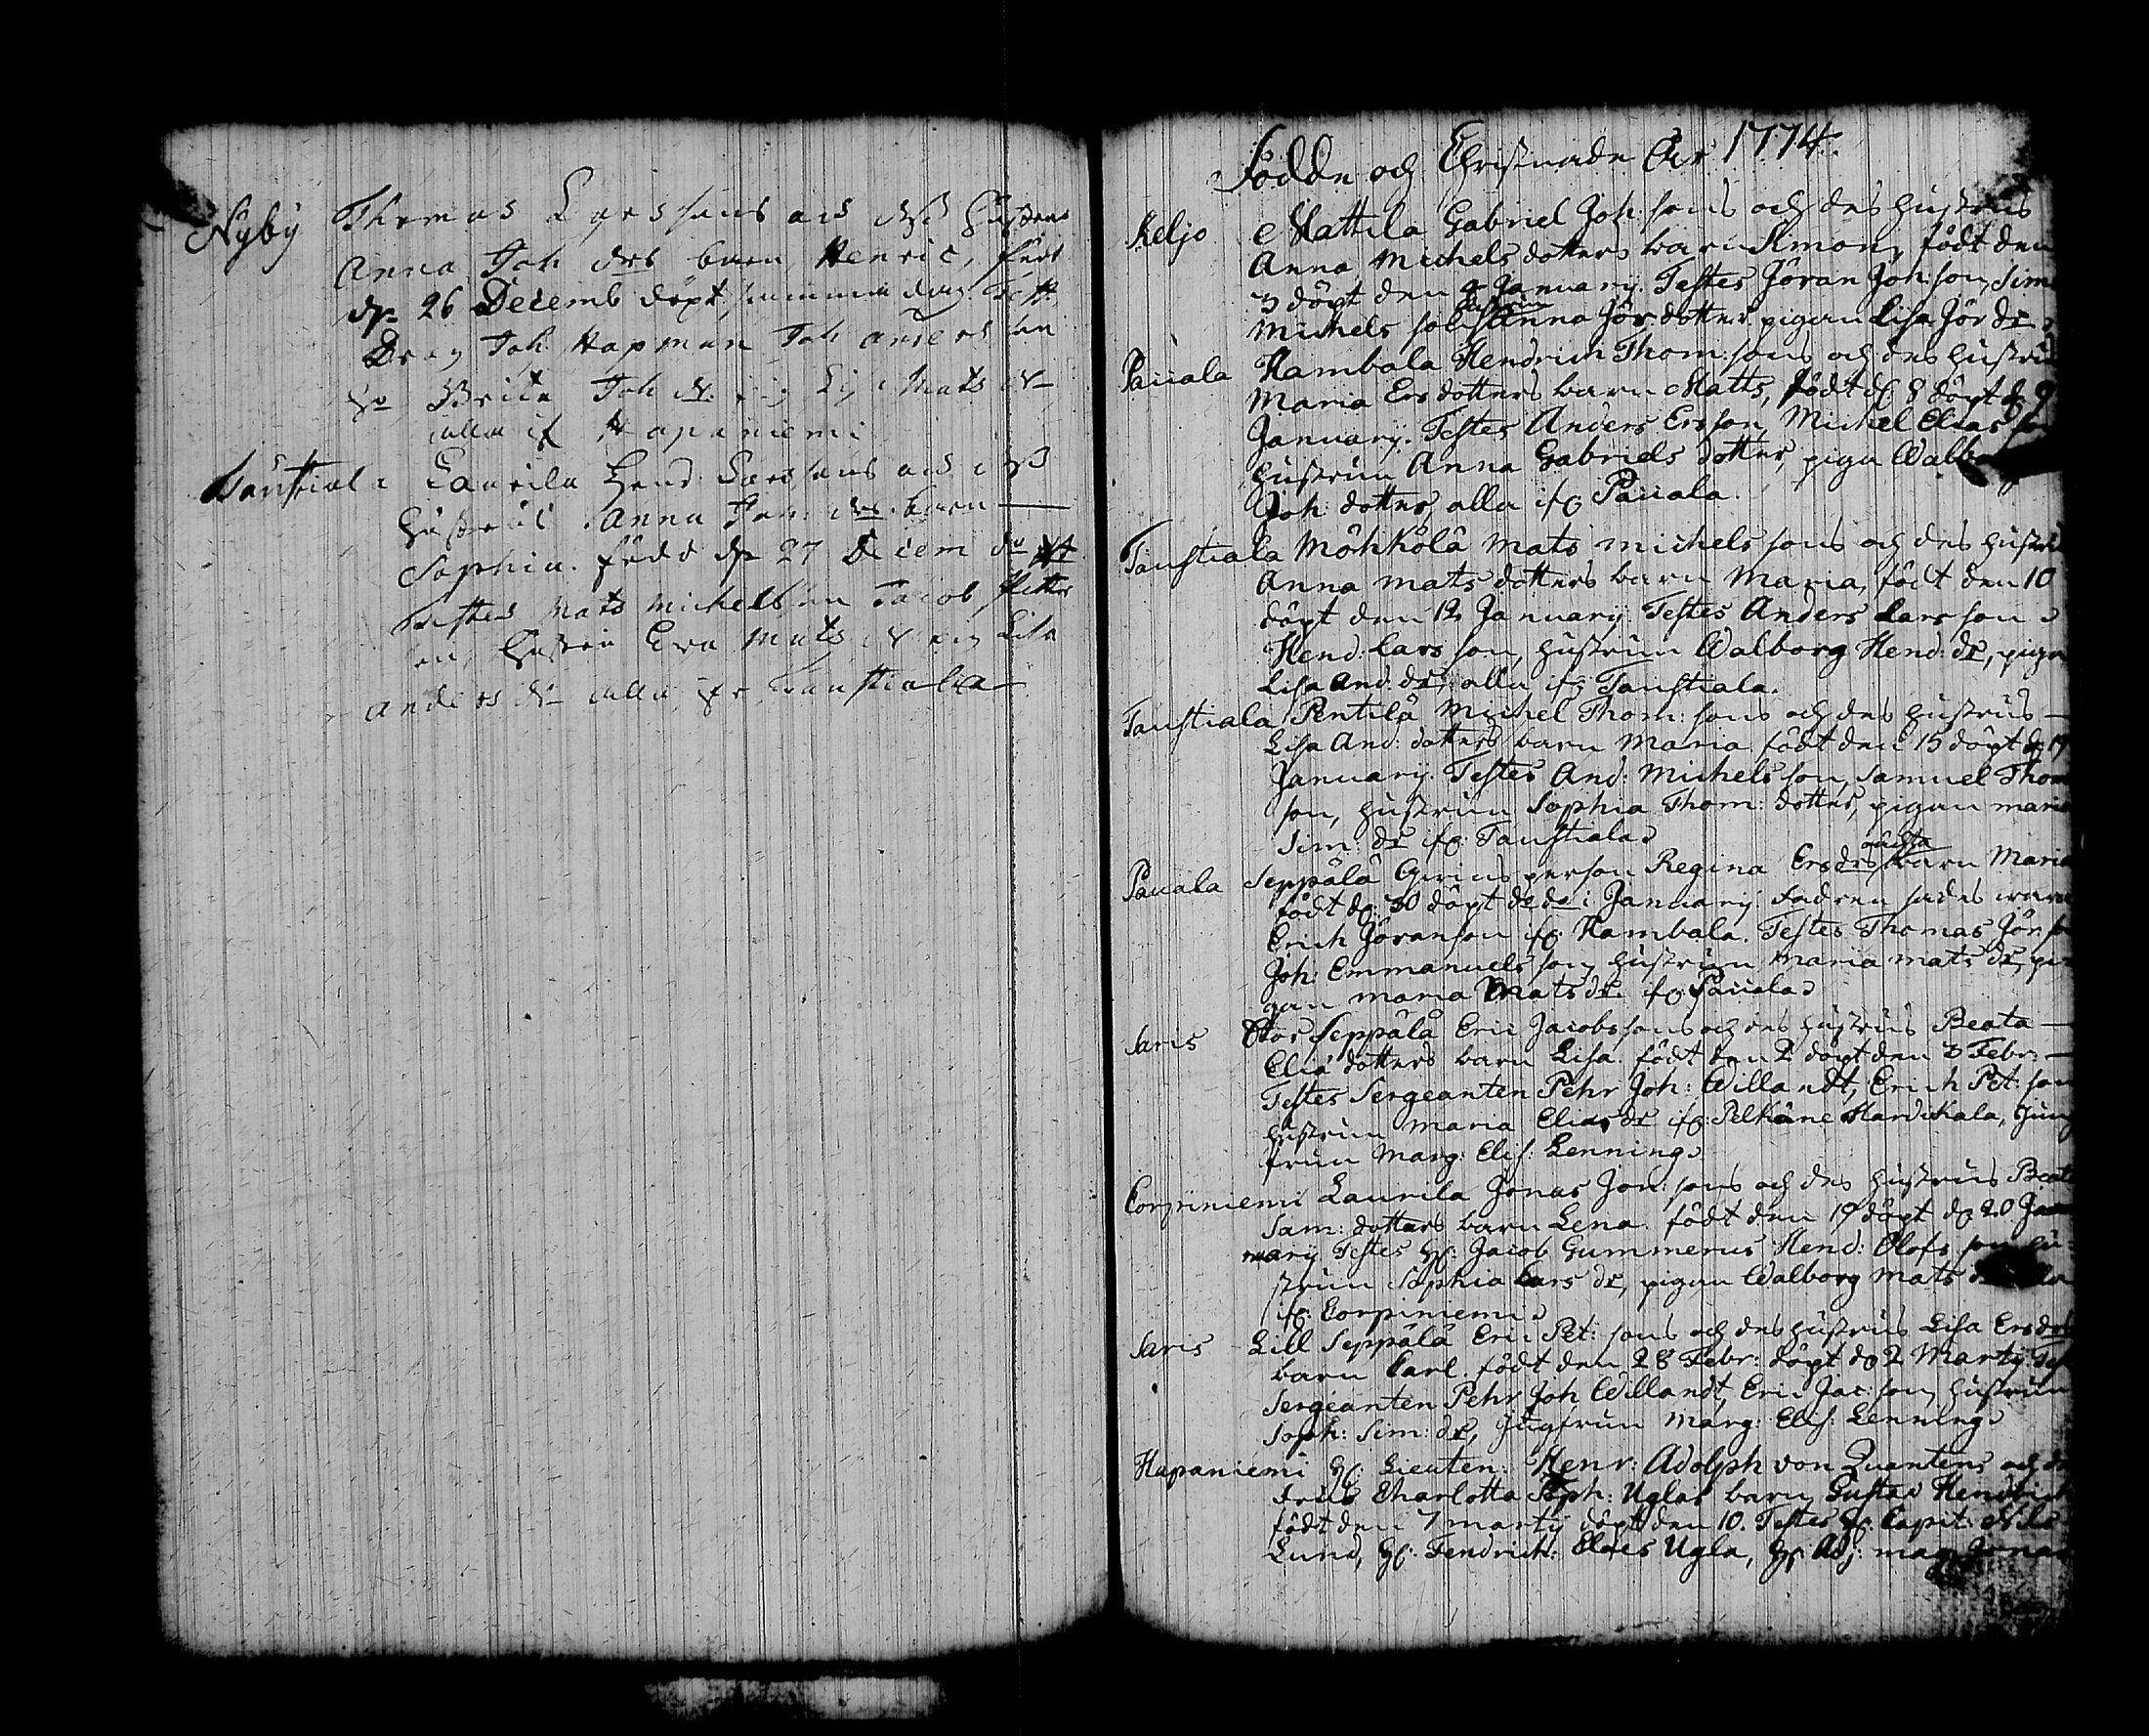 Nyby Thomas Larssons och dess hustrus
Anna Joh drs barn Henric, född
d. 26 Decemb döpt samma dag Test.
Dräg Joh. Hapman Joh Anders son
hu Brita Joh dr. pig Lis Mats dr
alla if Hapaniemi
Taustiala Laurila Hend Larssons och dess
hustrus Anna drs barn
Sophia. född d 27 Decem do
Testes Mats Michelsson Jacob Petter
son, hustru Eva Mats dr pig Lisa
Anders dr alla ifr Taustiala
Födde och Christnade År 1774.
Keljo Mattila Gabriel Joh: sons och des hustrus
Anna Michels dotters barn Simon, födt den
3 döpt den January. Testes Jöran Joh: son, Sim
hustrun
Michels son Anna Jör dotter pigan Lisa Jör dr
Pauala Kambala Hendrich Thom: sons och des hustru
Maria Ers dotters barn Matts, födt d: 8 döpt d. 9
January. Testes Anders Ersson, Michel Elias son
hustrun Anna Gabriels dotter, piga Walb
Joh: dotter, alla if: Pauala.
Taustiala Möhkölä Mats Michels sons och des hustru
Anna Mats dotters barn Maria, födt den 10
döpt den 12 January. Testes Anders Lars son
Hend: Lars son, hustrun Walborg Hend: dr, pigan
Lisa And: dr, alla if: Taustiala.
Taustiala Pentilä Michel Thom: sons och des hustrus
Lisa And: dotters barn Maria födt den 15 döpt d 19
January. Testes And: Michels son, Samuel Thom
son, hustrun Sophia Thom: dotter, pigan Maria
Sim: dr if: Taustiala
oächta
Pauala Seppälä Qvins person Regina Ers drs barn Maria
födt d: 30 döpt d: do i January. Fadren sades wara
Erich Jöranson if: Kambala. Testes Thomas Jör son
Joh: Emmanuels son, hustrun Maria Mats dr, pi
gan Maria Mats dr. if: Pauala
Saris Stor Seppälä Eric Jacobs sons och des hustrus Beata
Elia dotters barn Lisa. födt den 2 döpt den 3 Febr:
Testes Sergeanten Pehr Joh: Willandt, Erich Pet: son
hustrun Maria Elias dr if: Pelkäne Harickala, Jung
frun Marg: Elis: Lenning
Corpiniemi Laurila Jonas Jon: sons och des hustrus Beata
Sam: dotters barn Lena. födt den 19 döpt d: 20 Ja
nuary Testes H: Jacob Gummerus Hend: Olofs son hu
strun Sophia Lars dr, pigan Walborg Mats
if: Corpiniemi
Saris Lill Seppälä Eric Pet: sons och des hustrus Lisa Ers drs
barn Carl. födt den 28 Febr: döpt d 2 Marty. Tes
Sergeanten Pehr Joh Willandt, Eric Jac: son, hustrun
Soph: Sim: dr, Jugfrun Marg: Elis: Lenning
Hapaniemi H: Lieuten: Henr: Adolph von Quantens och
frus Charlotta Soph: Uglas barn Gustav Hendrich
födt den 7 Marty döpt den 10. Testes H: Capit: Nils
Lund, H: Fendrich: Claes Ugla, H: Adj: mag Jonas